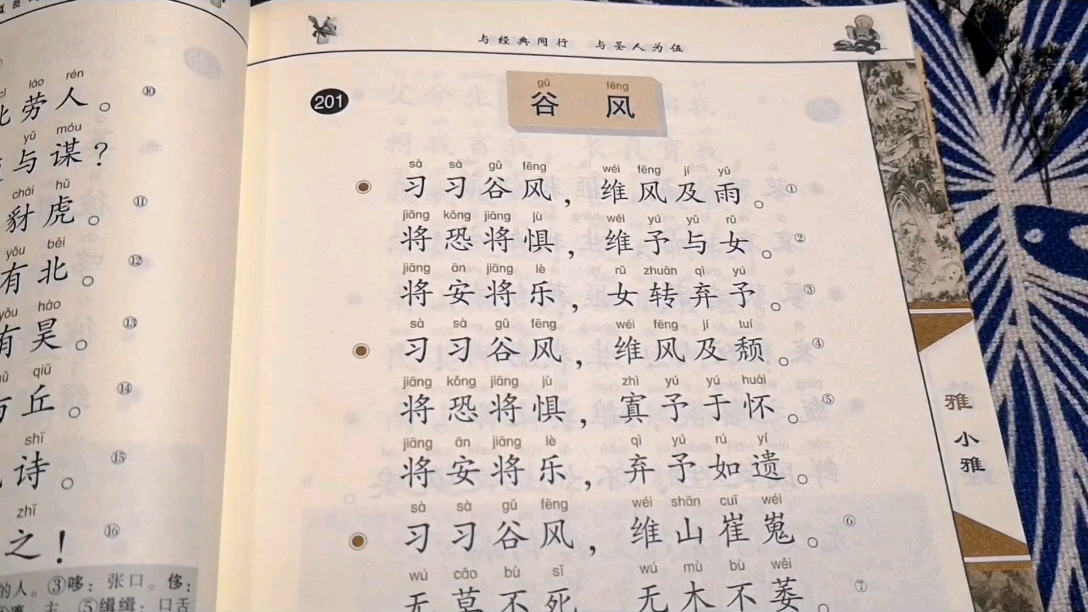 láo rén
劳人。⑩
yǔ móu
与谋？
chái hǔ
豺虎。⑪
yǒu běi
有北。⑫
yǒu hào
有昊。⑬
qiū
丘。⑭
shī
诗。⑮
zhī
之！⑯
的人。③哆：张口。侈：
⑤缉缉：口舌
与经典同行 与圣人为伍
201
gǔ fēng
谷风
sà sà gǔ fēng wéi fēng jí yǔ
习习谷风，维风及雨。①
jiāng kǒng jiāng jù wéi yú yǔ rǔ
将恐将惧，维予与女。②
jiāng ān jiāng lè rǔ zhuǎn qì yú
将安将乐，女转弃予。③
sà sà gǔ fēng wéi fēng jí tuí
习习谷风，维风及颓。④
jiāng kǒng jiāng jù zhì yú yú huái
将恐将惧，寘予于怀。⑤
jiāng ān jiāng lè qì yú rú yí
将安将乐，弃予如遗。
sà sà gǔ fēng wéi shān cuī wéi
习习谷风，维山崔嵬。⑥
wú cǎo bù sǐ wú mù bù wěi
无草不死，无木不萎。⑦
雅
小雅